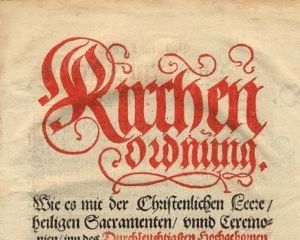 Kirchen
ordnung.
Wie es mit der Christenlichen Leere/
heiligen Sacramenten/ vnnd Ceremo-
nien/ inn des Durchleuchtigsten Hochgebornen